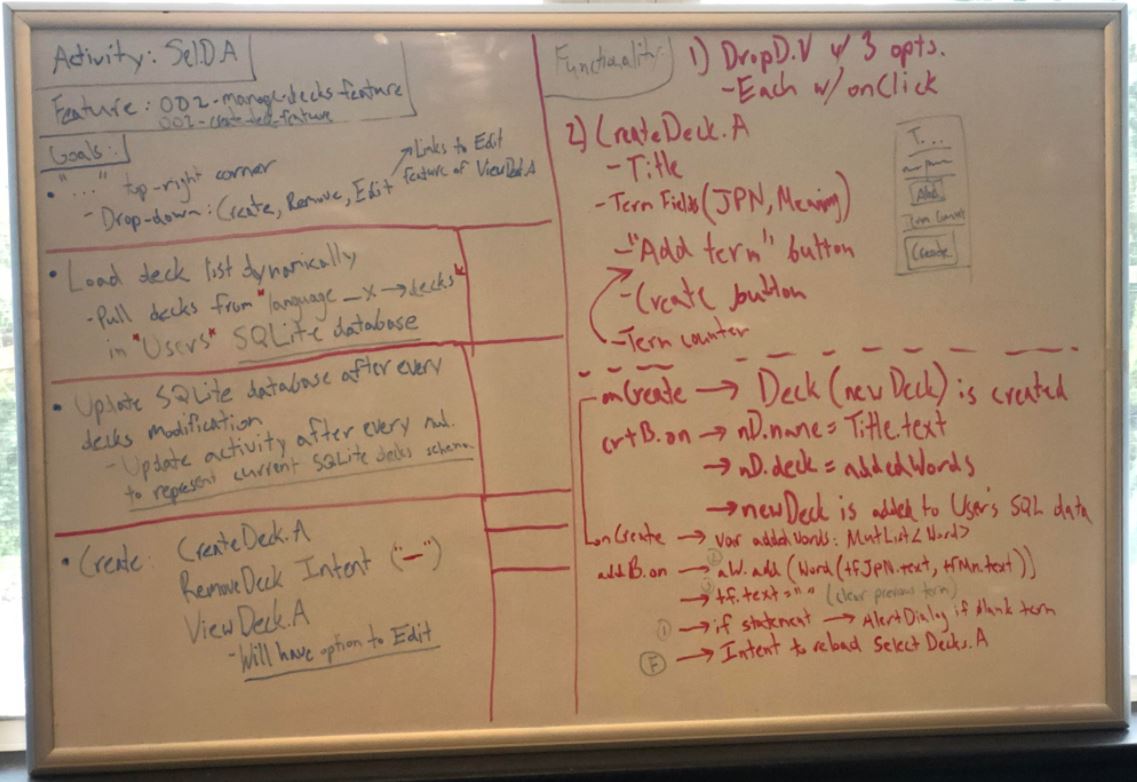 Activity: SelD.A
Feature: 002-manage-decks-feature
002-create-deck-feature
Goals:
• "..." top-right corner
- Drop-down: Create, Remove, Edit
Links to Edit
feature of ViewDeck.A
• Load deck list dynamically
- Pull decks from "language_X → decks"
in "Users" SQLite database
• Update SQLite database after every
decks modification
- Update activity after every
to represent current SQLite decks schema
• Create: CreateDeck.A
RemoveDeck Intent ("—")
ViewDeck.A
- Will have option to Edit
Functionality:
1) DropD.V w/ 3 opts.
- Each w/ onClick
2) CreateDeck.A
- Title
- Term Fields (JPN, Meaning)
- "Add term" button
- Create button
- Term counter
T...
Add
Term Counter
Create
onCreate → Deck (newDeck) is created
crtB.on → nD.name = Title.text
→ nD.deck = addedWords
→ newDeck is added to User's SQL data
onCreate → var addedWords: MutList<Word>
addB.on → ② aW.add(Word(tfJPN.text, tfMn.text))
③ → tf.text = "" (clear previous term)
① → if statement → AlertDialog if blank term
Ⓕ → Intent to reload SelectDecks.A